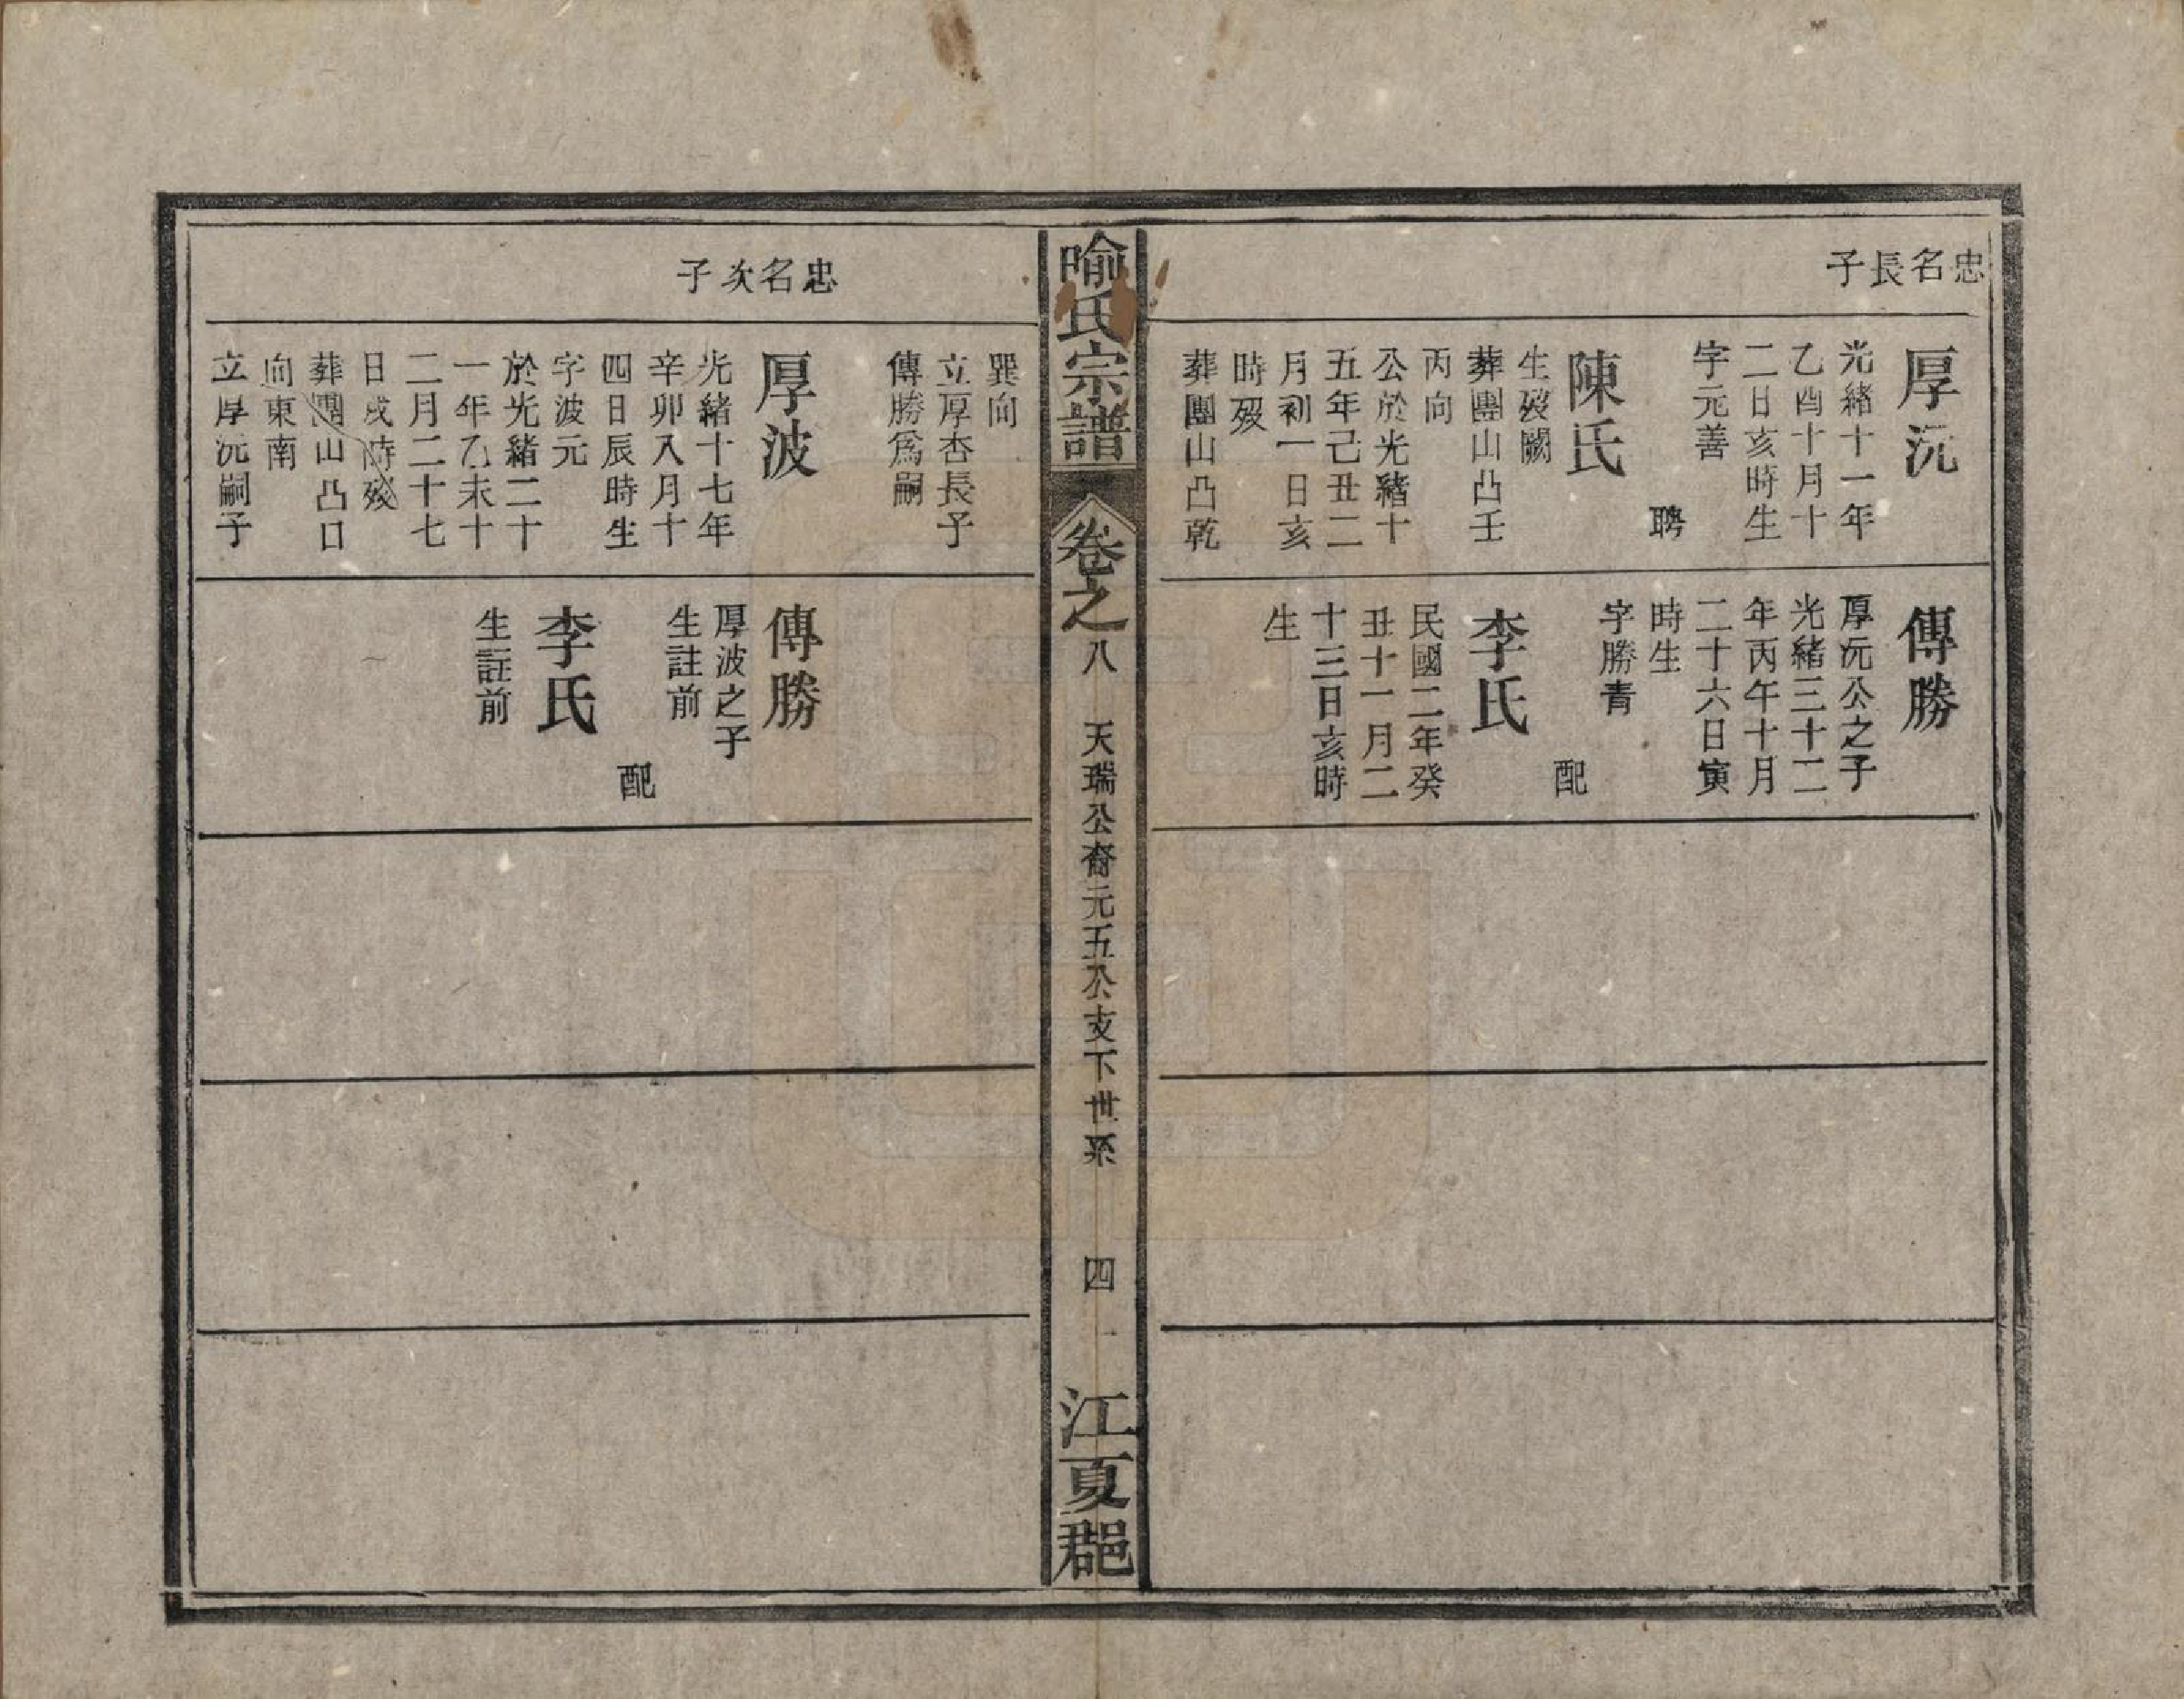 忠名長子
厚沅
光緒十一年
乙酉十月十
二日亥時生
字元善
聘
陳氏
生歿闕
葬團山凸壬
丙向
公於光緒十
五年己丑二
月初一日亥
時歿
葬團山凸乾
傳勝
厚沅公之子
光緒三十二
年丙午十月
二十六日寅
時生
字勝青
配
李氏
民國二年癸
丑十一月二
十三日亥時
生
喻氏宗譜
卷之八
天瑞公裔元五公支下世系
四
江夏郡
忠名次子
巽向
立厚杏長子
傳勝爲嗣
厚波
光緒十七年
辛卯八月十
四日辰時生
字波元
於光緒二十
一年乙未十
二月二十七
日戌時歿
葬團山凸口
向東南
立厚沅嗣子
傳勝
厚波之子
生註前
配
李氏
生註前